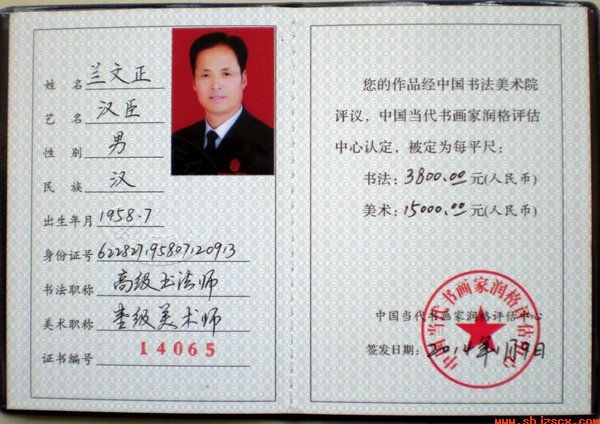 姓名 兰文正
艺名 汉臣
性别 男
民族 汉
出生年月 1958.7
身份证号 622827195807120913
书法职称 高级书法师
美术职称 壹级美术师
证书编号 14065
您的作品经中国书法美术院
评议，中国当代书画家润格评估
中心认定，被定为每平尺：
书法：3800.00 元(人民币)
美术：15000.00 元(人民币)
中国当代书画家润格评估中心
中国当代书画家润格评估中心
签发日期：2014年1月9日
www.shjzscx.com